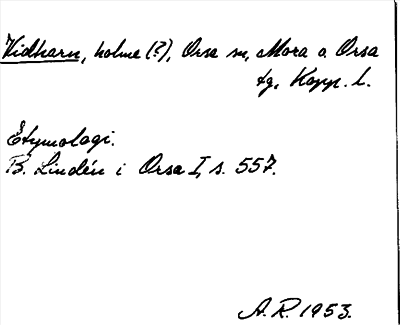 Vidharn, holme (?), Orsa sn, Mora o. Orsa
tg, Kopp. l.
Etymologi.
B. Lindén i Orsa I, s. 557.
A.R. 1953.